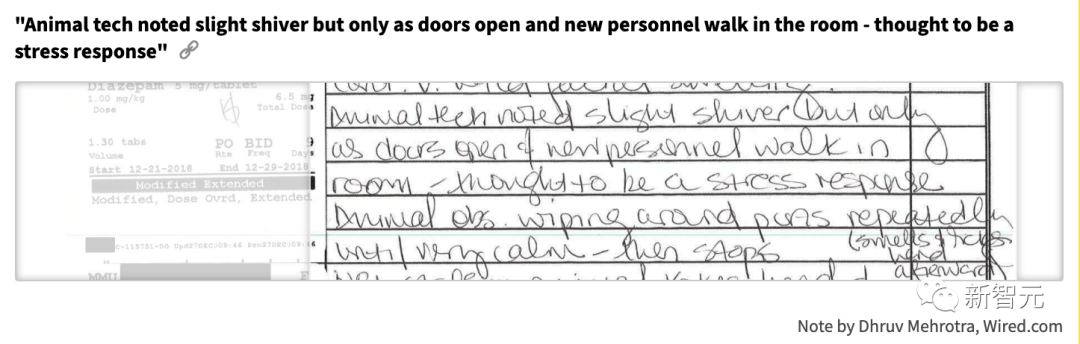 "Animal tech noted slight shiver but only as doors open and new personnel walk in the room - thought to be a
stress response"
Diazepam 5 mg/tablet
1.00 mg/kg 6.5 mg
Dose Total Dose
1.30 tabs PO BID 9
Volume Rte Freq Days
Start 12-21-2018 End 12-29-2018
Modified Extended
Modified, Dose Ovrd, Extended
MMU
Animal tech noted slight shiver (but only
as doors open & new personnel walk in
room - thought to be a stress response
Animal obs. wiping around
repeatedly
until very calm - then stops
(smells & licks
hand
afterward
新智元
Note by Dhruv Mehrotra, Wired.com